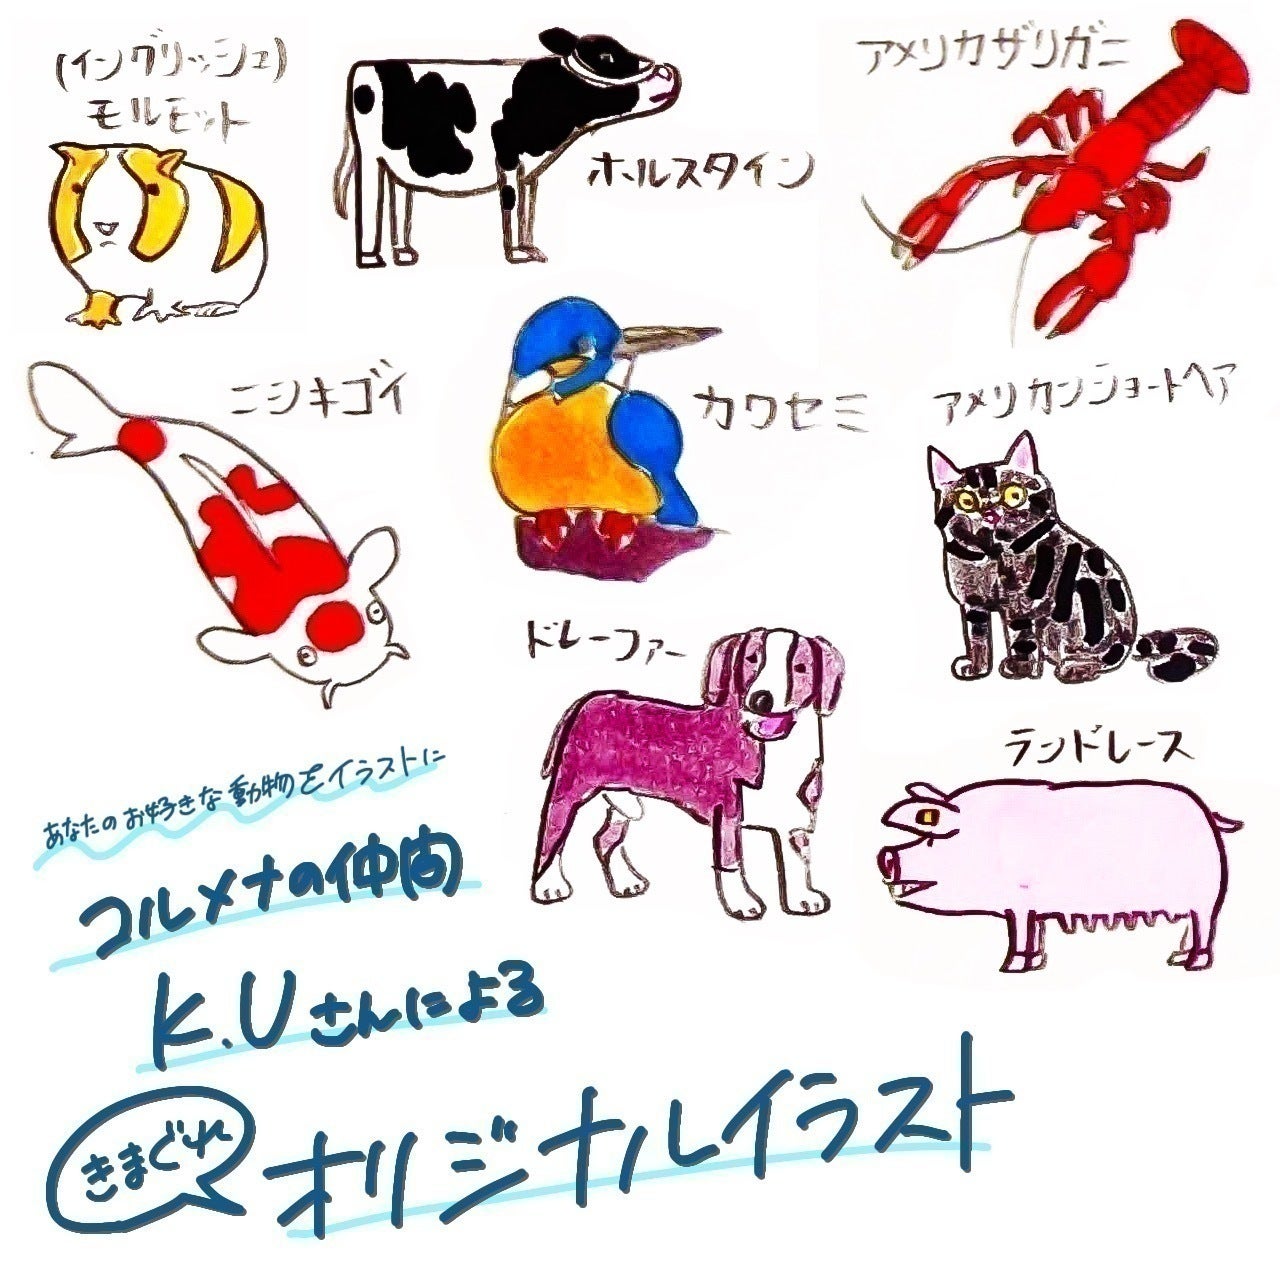 (イングリッシュ)
モルモット
ホールスタイン
アメリカザリガニ
ニシキゴイ
カワセミ
アメリカンショートヘア
ドレーファー
ランドレース
あなたのお好きな動物をイラストに
コルメナの仲間
K.Uさんによる
きまぐれ
オリジナルイラスト